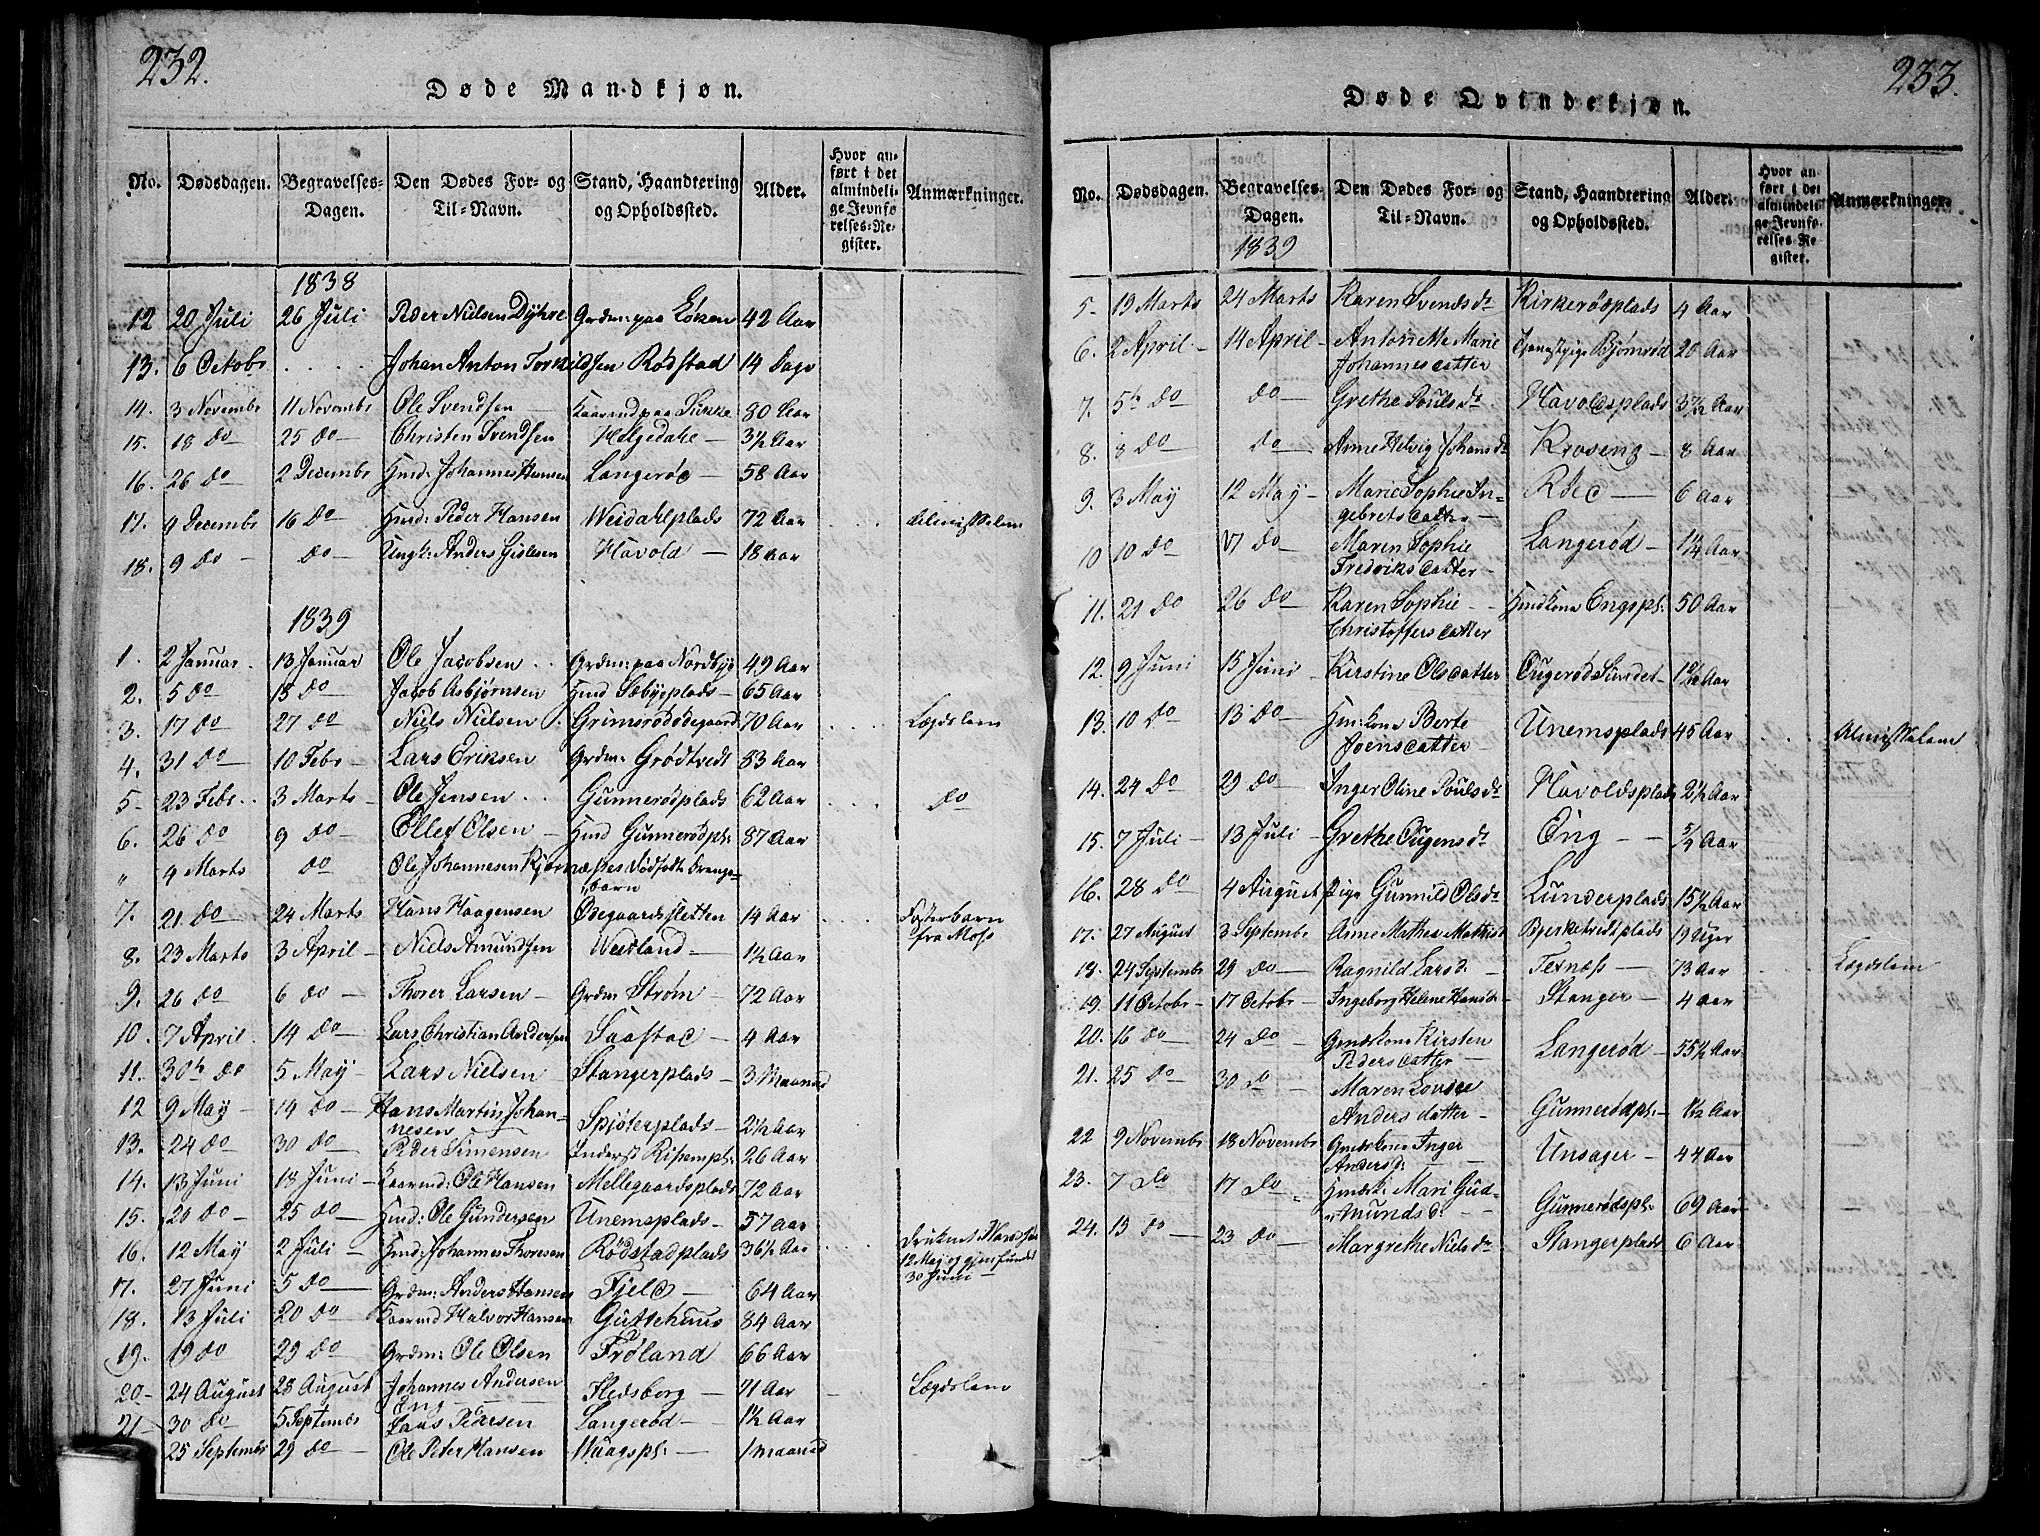 232.
Døde Mandkjøn.
No. Dødsdagen. Begravelses-Dagen. Den Dødes For- og Til-Navn. Stand, Haandtering og Opholdssted. Alder. Hvor anført i det almindelige Jevnførelses-Register. Anmærkninger.
1838
12 20 Juli 26 Juli Peder Nielsen Dyhre Grdm: paa Løken 42 Aar
13. 6 Octobr . . . . Johan Anton Torkildsen Rødstad 14 Dage
14. 3 Novembr 11 Novembr Ole Svendsen Kaarmd paa Sukke 80 Aar
15. 18 do 25 do Christen Svendsen Helgedahl 3½ Aar
16. 26 do 2 Decembr Hmd: Johannes Hansen Langerød 58 Aar
17. 4 Decembr 16 do Hmd: Peder Hansen Weidahlplads 72 Aar . . . Almisselem
18. 9 do do Ungk: Anders Gislesen Havold 18 Aar
1839
1. 2 Januar 13 Januar Ole Jacobsen Grdm: paa Nordbye 49 Aar
2. 5 do 13 do Jacob Asbjørnsen Hmd Sæbyeplads 65 Aar
3. 17 do 27 do Niels Nielsen Grimsrødødegaard 70 Aar . . . Lægdslem
4. 31 do 10 Febr Lars Eriksen Grdm: Grødtvedt 83 Aar
5. 23 Febr 3 Marts Ole Jensen Gunnerødplads 62 Aar . . . do
6. 26 do 9 do Ellef Olsen Hmd Gunnerødpl: 87 Aar
" 4 Marts do Ole Johannesen Kjærnæsses Dødfødt Drenge-
barn
7. 21 do 24 Marts Hans Haagensen Ødegaardsletten 14 Aar . . . Fosterbarn
fra Moss
8. 23 Marts 3 April Niels Amundsen Westland 1½ Aar
9. 26 do 6 do Thorer Larsen Grdm: Strøm 72 Aar
10. 7 April 14 do Lars Christian Andersen Saastad 4 Aar
11. 30te do 5 May Lars Nielsen Stangerplads 3 Maaned
12 9 May 14 do Hans Martin Johan-
nesen Spjøterplads 2½ Aar
13. 24 do 30 do Peder Simensen Inderst Risempl: 26 Aar
14. 13 Juni 18 Juni Kaarmd: Ole Hansen Mellegaardsplads 72 Aar
15. 20 do 25 do Hmd: Ole Gundersen Unemsplads 57 Aar
16. 12 May 2 Juli Hmd: Johannes Thoresen Rødstadplads 36½ Aar . . . Druknet
12 May og gjenfundet
30 Juni
17. 27 Juni 5 do Grdm: Anders Hansen Fjeld 64 Aar
18. 13 Juli 20 do Kaarmd Halvor Hansen Guttehuus 84 Aar
19. 19 do 29 do Grdm: Ole Olsen Frøland 66 Aar
20 24 August 28 August Johannes Andersen
Eng Hedsborg 71 Aar Lægdslem
21 30 do 5 Septembr Lars Pedersen Langerød 1½ Aar
25 Septembr 29 do Ole Peter Hansen Waagspl: 1 Maaned
233.
Døde Qvindekjøn.
No. Dødsdagen. Begravelses-Dagen. Den Dødes For- og Til-Navn. Stand, Haandtering og Opholdssted. Alder. Hvor anført i det almindelige Jevnførelses-Register. Anmærkninger.
1839
5 19 Marts 24 Marts Karen Svendsdr Kirkerødplads 4 Aar
6. 2 April 14 April Antonette Marie
Johannesdatter Tjenestpige Bjørnrød 20 Aar
7. 5te do do Grethe Poulsdr Havoldsplads Aar
8. 8 do do Anne Helvig Johansdr Kroseng 8 Aar
9. 3 May 12 May Marie Sophie In-
gebretsdatter Rød 6 Aar
10 10 do do Maren Sophie
Fredriksdatter Langerød 1¼ Aar
11. 21 do 26 do Karen Sophie
Christoffersdatter Hmdkone Engspl: 50 Aar
12. 9 Juni 15 Juni Kirstine Olsdatter Sundet Aar
13. 10 do 13 do Hmkone Berte
Joensdatter Unemsplads 45 Aar . . . Almisselem
14. 24 do 29 do Inger Oline Poulsdr Havoldsplads 2½ Aar
15. 7 Juli 13 Juli Grethe Eugensdr Eng 5/4 Aar
16. 28 do 4 August Pige Gunnild Olsdr Lunderplads 15½ Aar
17. 27 August 3 Septembr Anne Mathea Mathisdr Bjerketvedtplads 19 Uger
18. 24 Septembr 29 do Ragnild Larsd. Texnæss 73 Aar . . Lægdslem
19. 11 Octobr 17 Octobr Ingeborg Helene Hansdr Stanger 4 Aar
20. 16 do 24 do Gmdskone Kirsten
Pedersdatter Langerød 55½ Aar
21. 25 do 30 do Maren Lovise
Andersdatter Gunnerødpl: 1½ Aar
22 9 Novembr 18 Novembr Gmdskone Inger
Andersd: Unsager 44 Aar
23. 7 do 17 do Hmdsk: Mari Gud-
mundsd: Gunnerødpl: 69 Aar
24. 13 do 23 do Margrethe Nielsdr Stangerplads 6 Aar